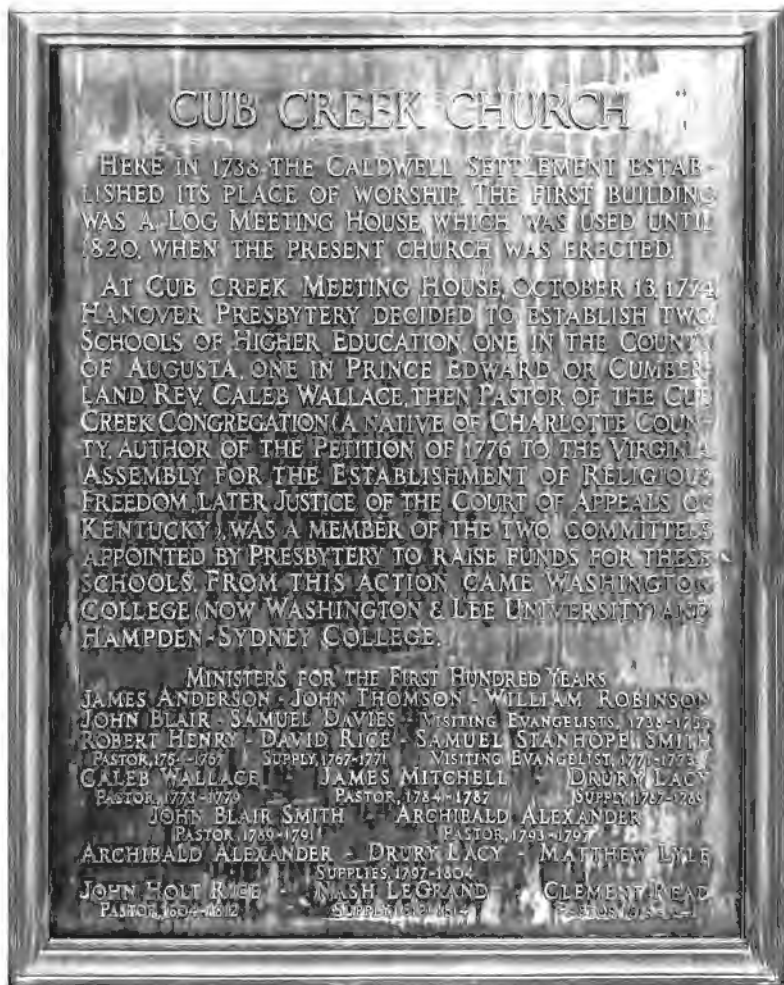 CUB CREEK CHURCH
HERE IN 1738 THE CALDWELL SETTLEMENT ESTAB-
LISHED ITS PLACE OF WORSHIP. THE FIRST BUILDING
WAS A LOG MEETING HOUSE, WHICH WAS USED UNTIL
1820, WHEN THE PRESENT CHURCH WAS ERECTED.
AT CUB CREEK MEETING HOUSE, OCTOBER 13, 1774,
HANOVER PRESBYTERY DECIDED TO ESTABLISH TWO
SCHOOLS OF HIGHER EDUCATION, ONE IN THE COUNTY
OF AUGUSTA, ONE IN PRINCE EDWARD OR CUMBER-
LAND. REV. CALEB WALLACE, THEN PASTOR OF THE CUB
CREEK CONGREGATION (A NATIVE OF CHARLOTTE COUN-
TY, AUTHOR OF THE PETITION OF 1776 TO THE VIRGINIA
ASSEMBLY FOR THE ESTABLISHMENT OF RELIGIOUS
FREEDOM, LATER JUSTICE OF THE COURT OF APPEALS OF
KENTUCKY), WAS A MEMBER OF THE TWO COMMITTEES
APPOINTED BY PRESBYTERY TO RAISE FUNDS FOR THESE
SCHOOLS. FROM THIS ACTION CAME WASHINGTON
COLLEGE (NOW WASHINGTON & LEE UNIVERSITY) AND
HAMPDEN-SYDNEY COLLEGE.
MINISTERS FOR THE FIRST HUNDRED YEARS
JAMES ANDERSON - JOHN THOMSON - WILLIAM ROBINSON
JOHN BLAIR - SAMUEL DAVIES - VISITING EVANGELISTS, 1738-
ROBERT HENRY - DAVID RICE - SAMUEL STANHOPE SMITH
PASTOR, SUPPLY, 1767-1771 VISITING EVANGELIST, 1771-1773
CALEB WALLACE JAMES MITCHELL DRURY LACY
PASTOR, 1773-1779 PASTOR, 1784-1787 SUPPLY, 1787-1789
JOHN BLAIR SMITH ARCHIBALD ALEXANDER
PASTOR, 1789-1791 PASTOR, 1793-1797
ARCHIBALD ALEXANDER - DRURY LACY - MATTHEW LYLE
SUPPLIES, 1797-1804
JOHN HOLT RICE - NASH LEGRAND - CLEMENT READ
PASTOR, 1804-1812 SUPPLY PASTOR